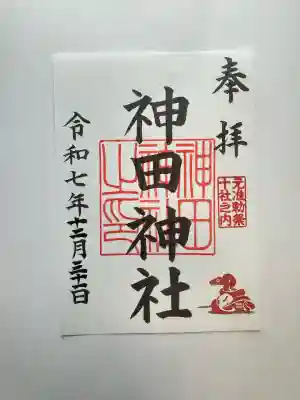 奉拝
元准勅祭
十社之内
神田神社
神田
神社
之印
令和七年十二月三十一日